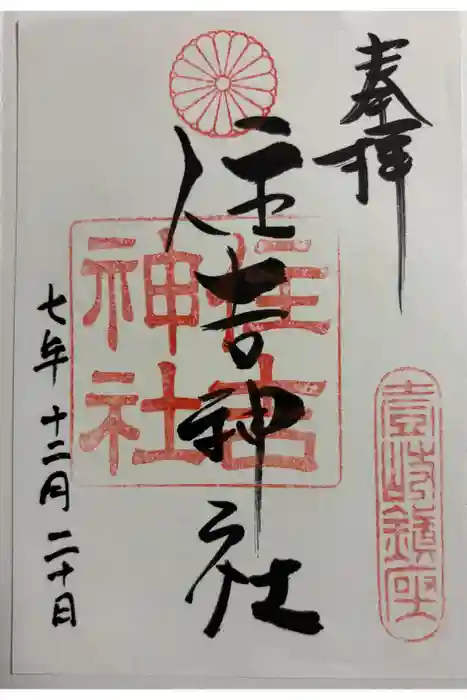 奉拝
壱岐鎮座
住吉神社
住吉
神社
七年十二月二十日